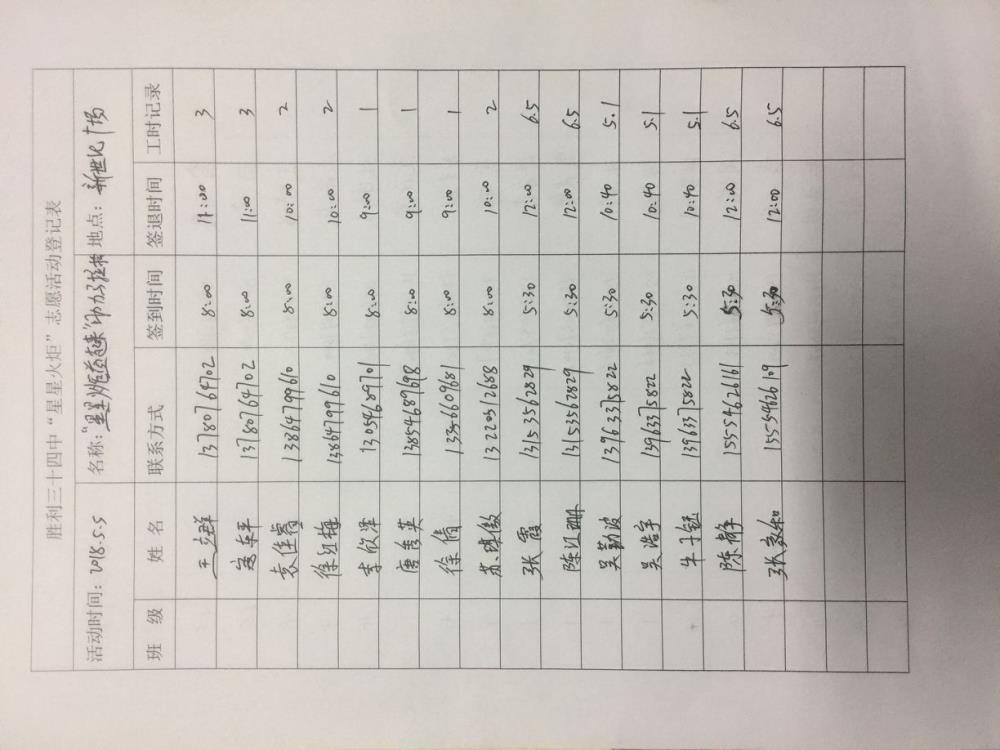 胜利三十四中“星星火炬”志愿活动登记表
活动时间：2018.5.5 名称：“星星火炬益起来” 地点：新世纪广场
班 级 姓 名 联系方式 签到时间 签退时间 工时记录
王立群 13780764702 8:00 11:00 3
寇东平 13780764702 8:00 11:00 3
袁佳睿 13864799610 8:00 10:00 2
徐红梅 13864799610 8:00 10:00 2
李欣泽 13054689701 8:00 9:00 1
唐秀英 13854689698 8:00 9:00 1
徐倩 13356609681 8:00 9:00 1
苏琪傲 13220512688 8:00 10:00 2
张霞 13153562829 5:30 12:00 6.5
陈江珊 13153562829 5:30 12:00 6.5
吴勤波 13963375822 5:30 10:40 5.1
吴浩宇 13963375822 5:30 10:40 5.1
牛子钰 13963375822 5:30 10:40 5.1
陈静 15554626161 5:30 12:00 6.5
张 15554626109 5:30 12:00 6.5